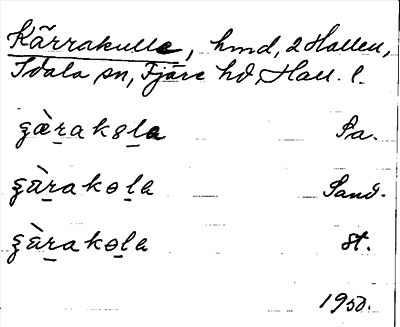 Kärrakulle, hmd, 2 Hallen,
Idala sn, Fjäre hd, Hall. l.
ɕæ̀ṟakɵḻa Pa.
ɕä̀ṟakɵḻa Sand.
ɕä̀ṟakɵḻa St.
1950.